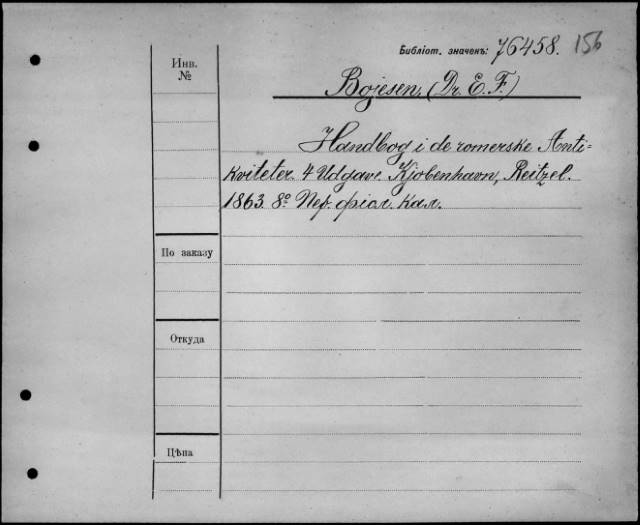 Библіот. значенъ: 76458. 156
Инв.
№
Bojesen, (Dr. E. F.)
Handbog i de romerske Anti=
kviteter. 4 Udgave. Kjobenhavn, Reitzel.
1863. 8º. Пер. фіол. кал.
По заказу
Откуда
Цѣна